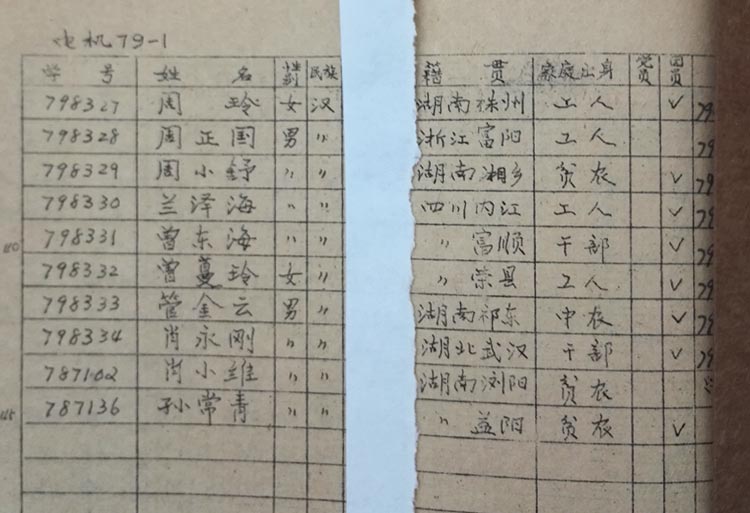 电机79-1
学号 姓名 性别 民族 籍贯 家庭出身 党员 团员
798327 周玲 女 汉 湖南株州 工人 ✓ 79
798328 周正国 男 〃 浙江富阳 工人 79
798329 周小舒 〃 〃 湖南湘乡 贫农 ✓ 79
798330 兰泽海 〃 〃 四川内江 工人 ✓ 79
110 798331 曾东海 〃 〃 〃 富顺 干部 ✓ 79
798332 曾蔓玲 女 〃 〃 荣县 工人 ✓ 79
798333 管金云 男 〃 湖南祁东 中农 ✓ 79
798334 肖永刚 〃 〃 湖北武汉 干部 ✓ 79
787102 肖小维 〃 〃 湖南浏阳 贫农
115 787136 孙常青 〃 〃 〃 益阳 贫农 ✓